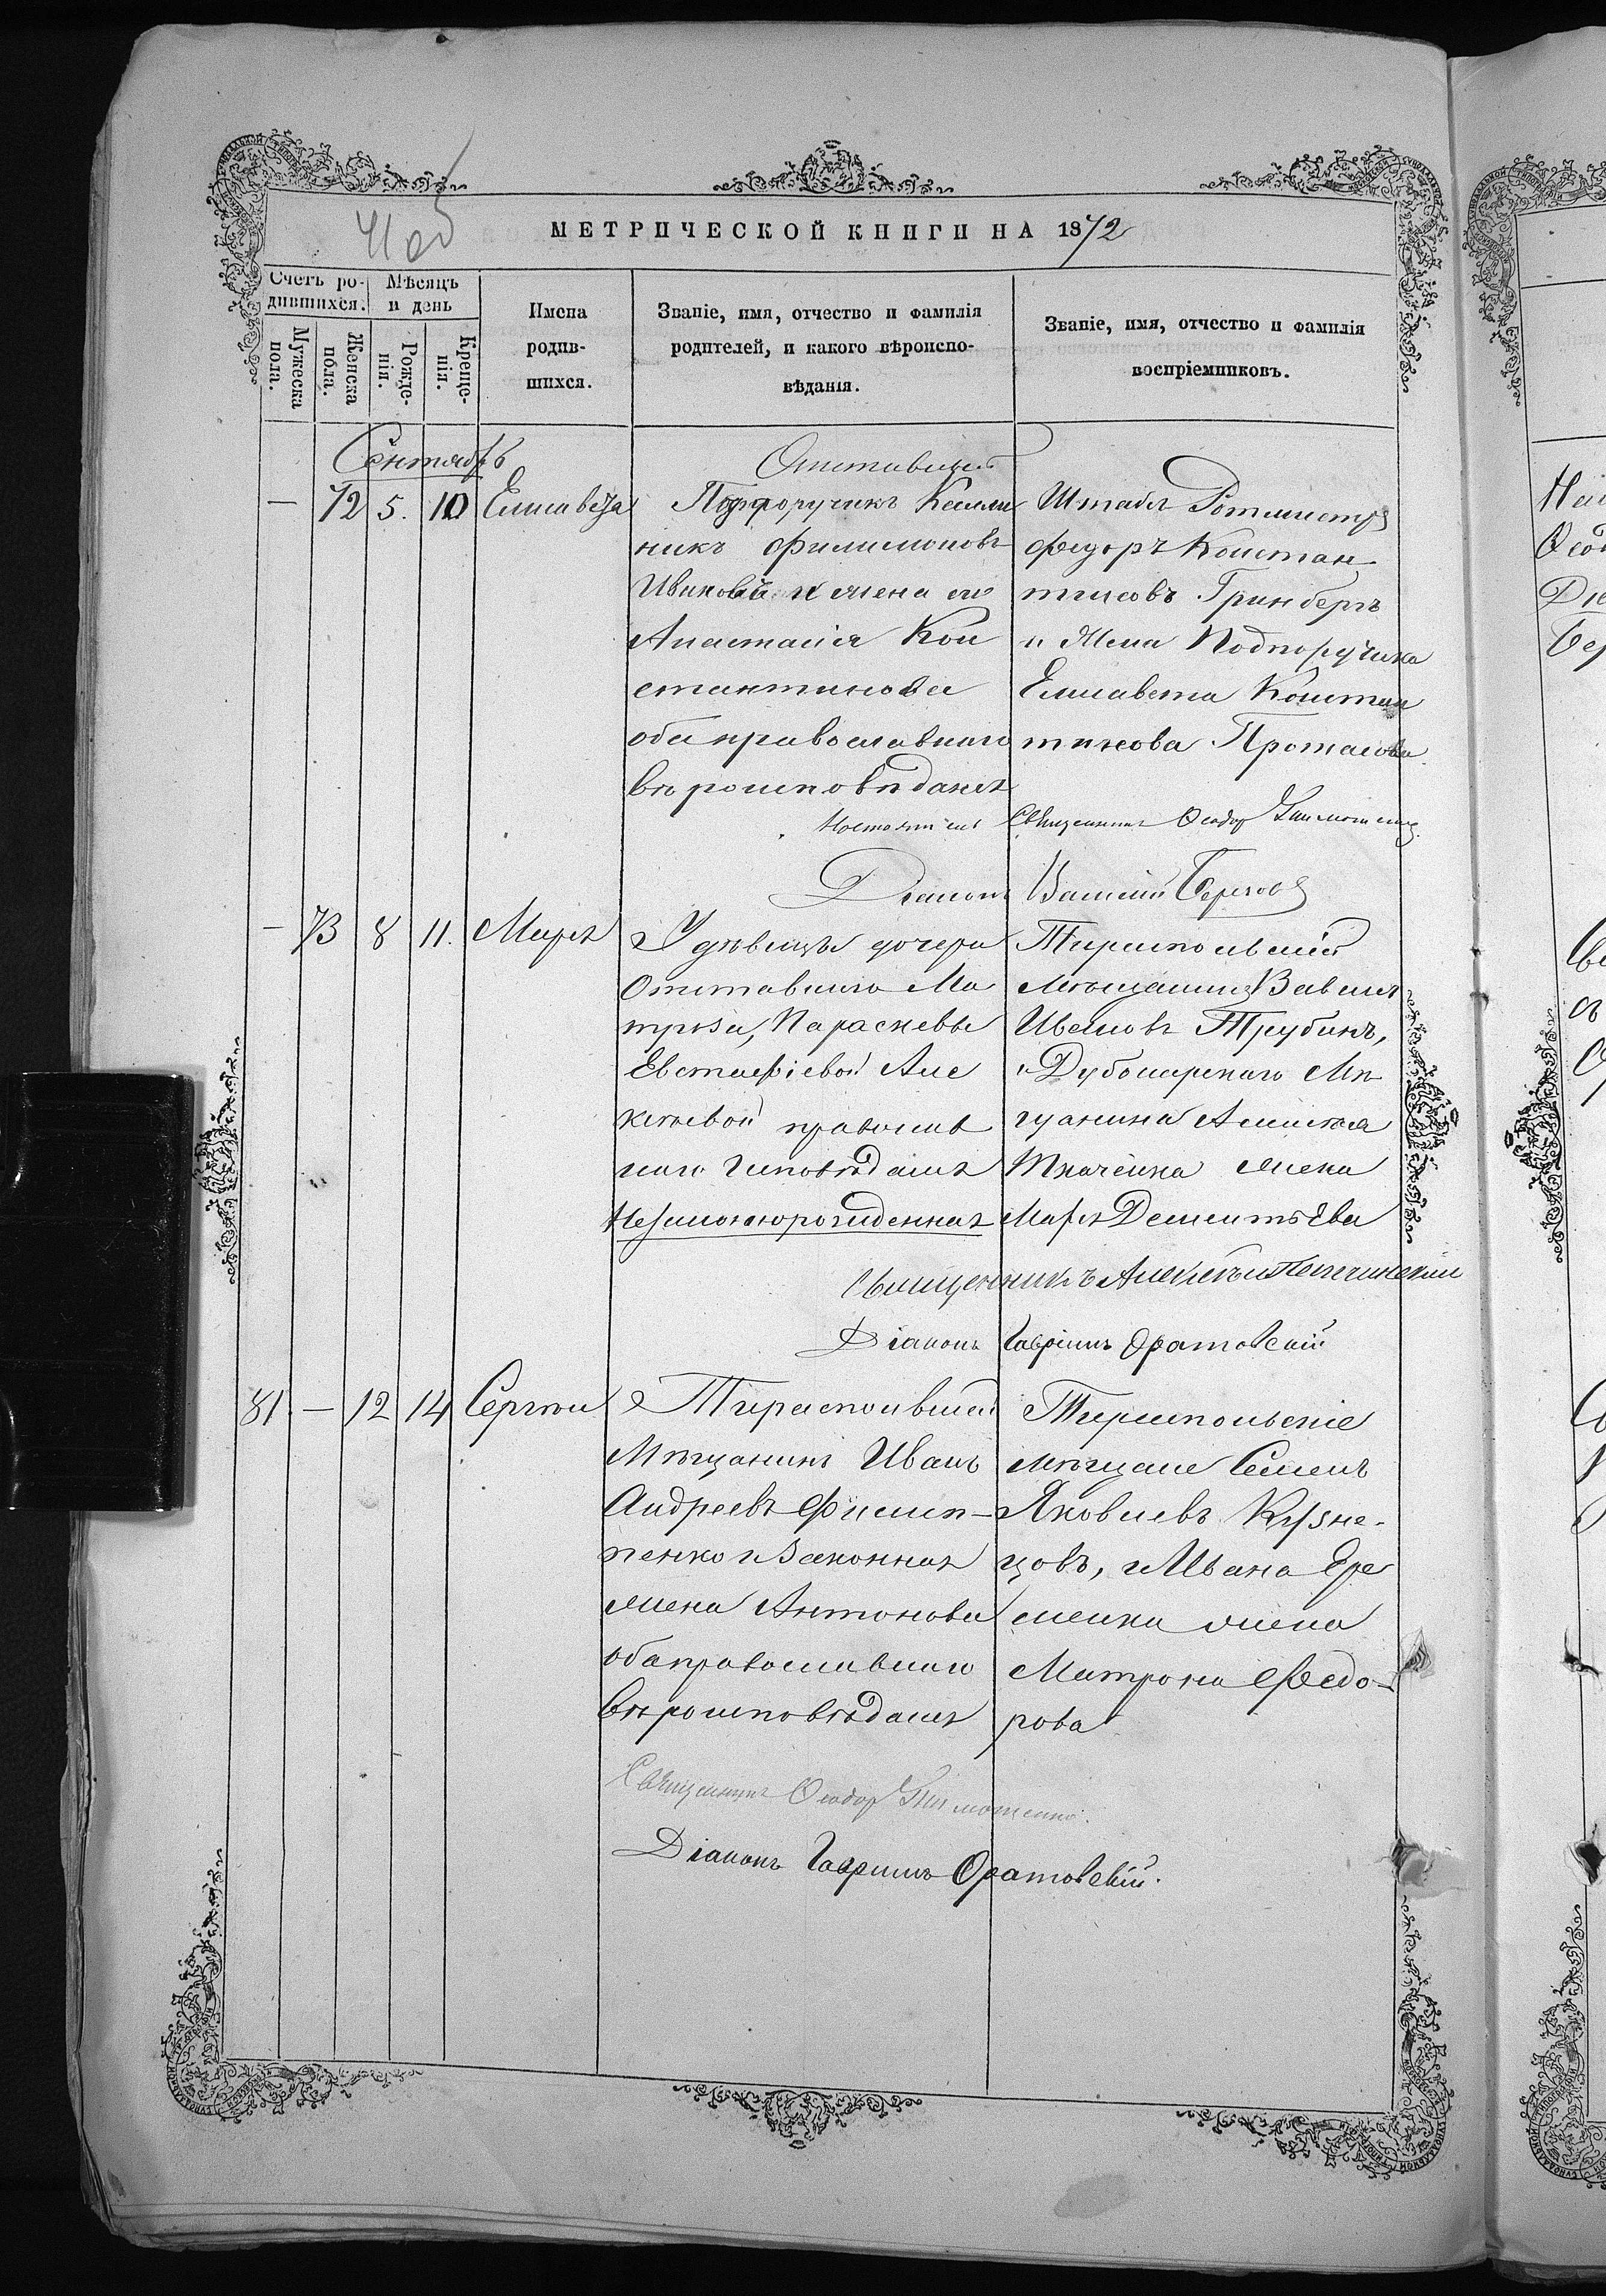 МЕТРИЧЕСКОЙ КНИГИ НА 1872
Счетъ ро-
дившихся.
Мѣсяцъ
и день
Мужеска
пола.
Женска
пола.
Рожде-
нія.
Креще-
нія.
Имена
родив-
шихся.
Званіе, имя, отчество и фамилія
родителей, и какого вѣроиспо-
вѣданія.
Званіе, имя, отчество и фамилія
воспріемниковъ.
Сентябрь
— 72 5. 10 Елисавета
Отставной
Подпоручикъ
никъ Филимоновъ
и жена его
Анастасія Кон
стантинова
оба православнаго
вѣроисповѣданія
Штабъ Ротмистръ
Федоръ Констан
тиновъ Гринбергъ
и Жена Подпоручика
Елисавета Констан
тинова Протасова
Настоятель Священникъ Ѳеодор
Діаконъ Василій
— 73 8 11. Марія
У дѣвицы дочери
Отставнаго Ма
троза, Параскевы
Евстафіевой Але
ксѣевой православ
наго исповѣданія
Незаконнорожденная
Тираспольскій
мѣщанинъ Вавилъ
Ивановъ Трубинъ,
и Дубоссарскаго Мѣ
щанина Алексѣя
Ткаченка жена
Марія Дементьева
Священникъ Алексѣй
Діаконъ Гавріилъ Оратовскій
81. — 12 14 Сергѣй
Тираспольскій
Мѣщанинъ Иванъ
Андреевъ Филип-
пенко и Законная
жена Антонова
оба православнаго
вѣроисповѣданія
Тираспольскіе
мѣщане Семенъ
Яковлевъ Кузне-
цовъ, и Ивана Ере
менка жена
Матрона Федо-
рова
Священникъ Ѳеодор
Діаконъ Гавріилъ Оратовскій.